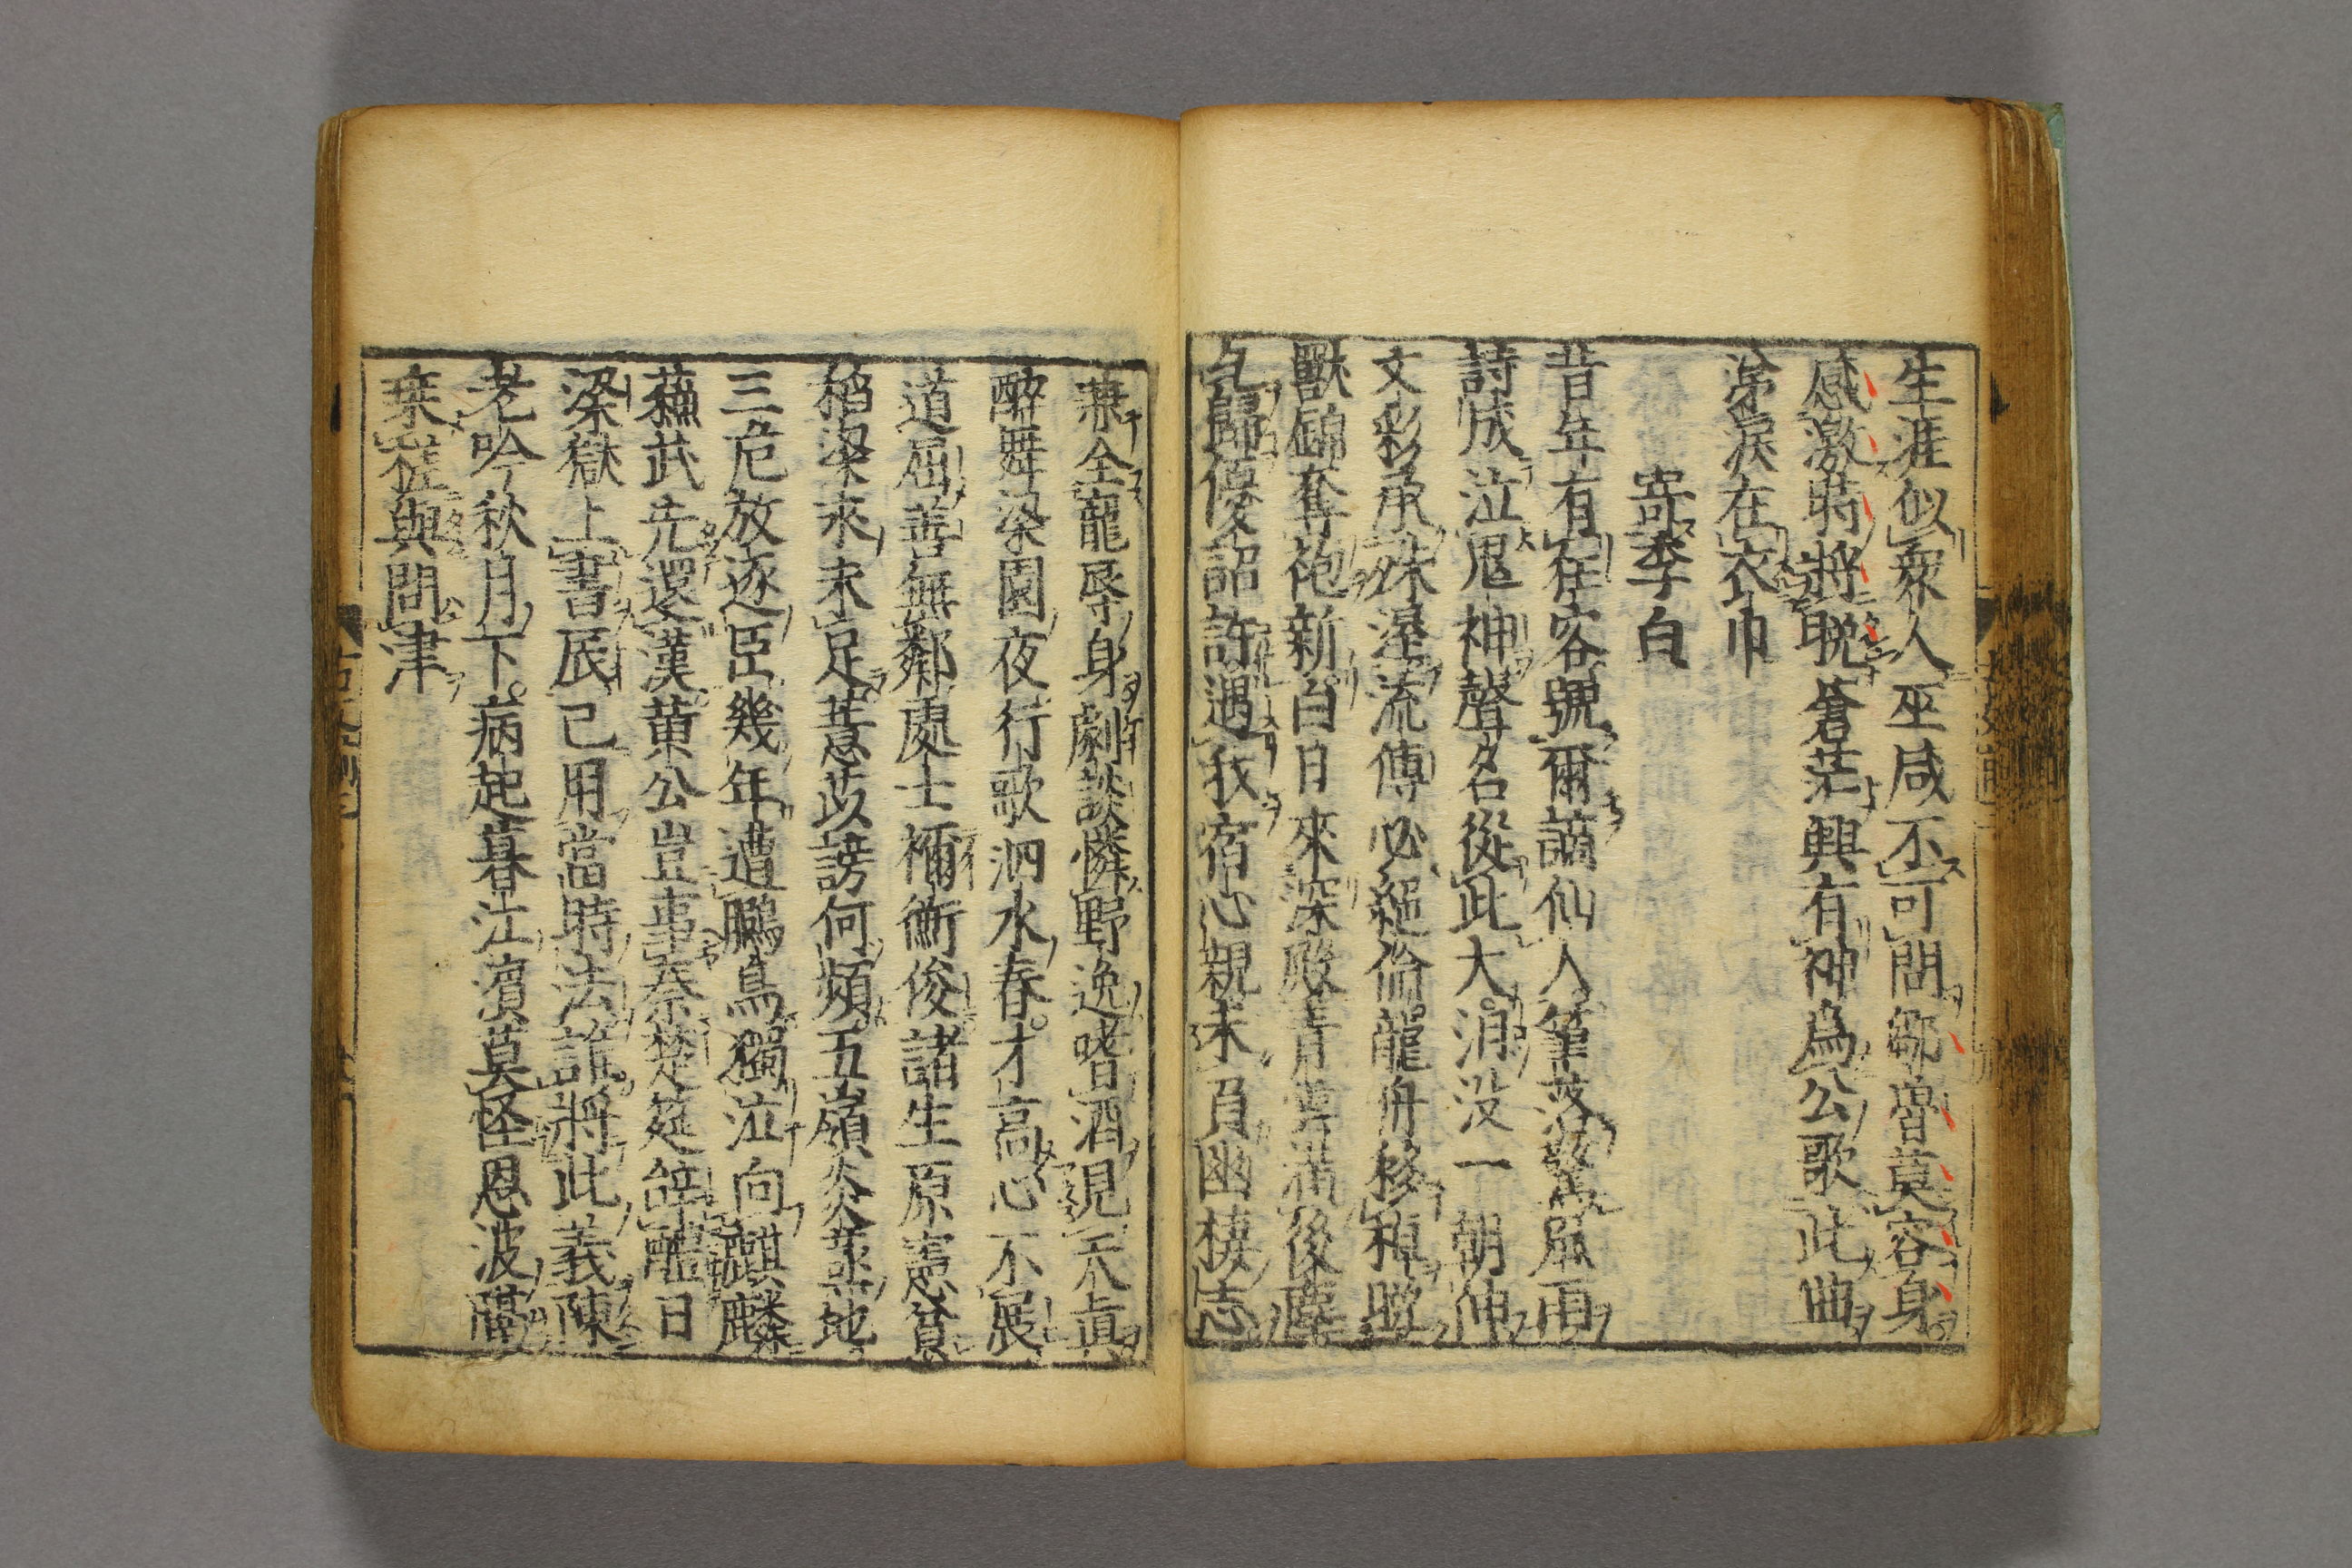 生涯似衆人巫咸不可問鄒魯莫容身
感激時將晩蒼茫興有神爲公歌此曲
涕淚在衣巾
寄李白
昔年有狂客號爾謫仙人筆落驚風雨
詩成泣鬼神聲名從此大汨没一朝伸
文彩承殊渥流傳必絕倫龍舟移棹晚
獸錦奪袍新白日來深殿青雲滿後塵
乞歸優詔許遇我宿心親未負幽棲志
兼全寵辱身劇談憐野逸嗜酒見天眞
醉舞梁園夜行歌泗水春才高心不展
道屈善無鄰處士禰衡俊諸生原憲貧
稻粱求未足薏苡謗何頻五嶺炎蒸地
三危放逐臣幾年遭鵩鳥獨泣向麒麟
蘇武先還漢黄公豈事秦楚筵辭醴日
梁獄上書辰已用當時法誰將此義陳
老吟秋月下病起暮江濱莫怪恩波隔
乘槎與問津